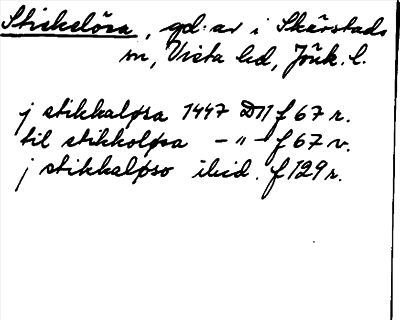 Stickelösa, gd:ar i Skärstads
sn, Vista hd, Jönk. l.
j stikkaløsa 1447 D11 f 67 r.
til stikkoløsa – " – f 67 v.
j stikkaløso ibid. f 129 r.